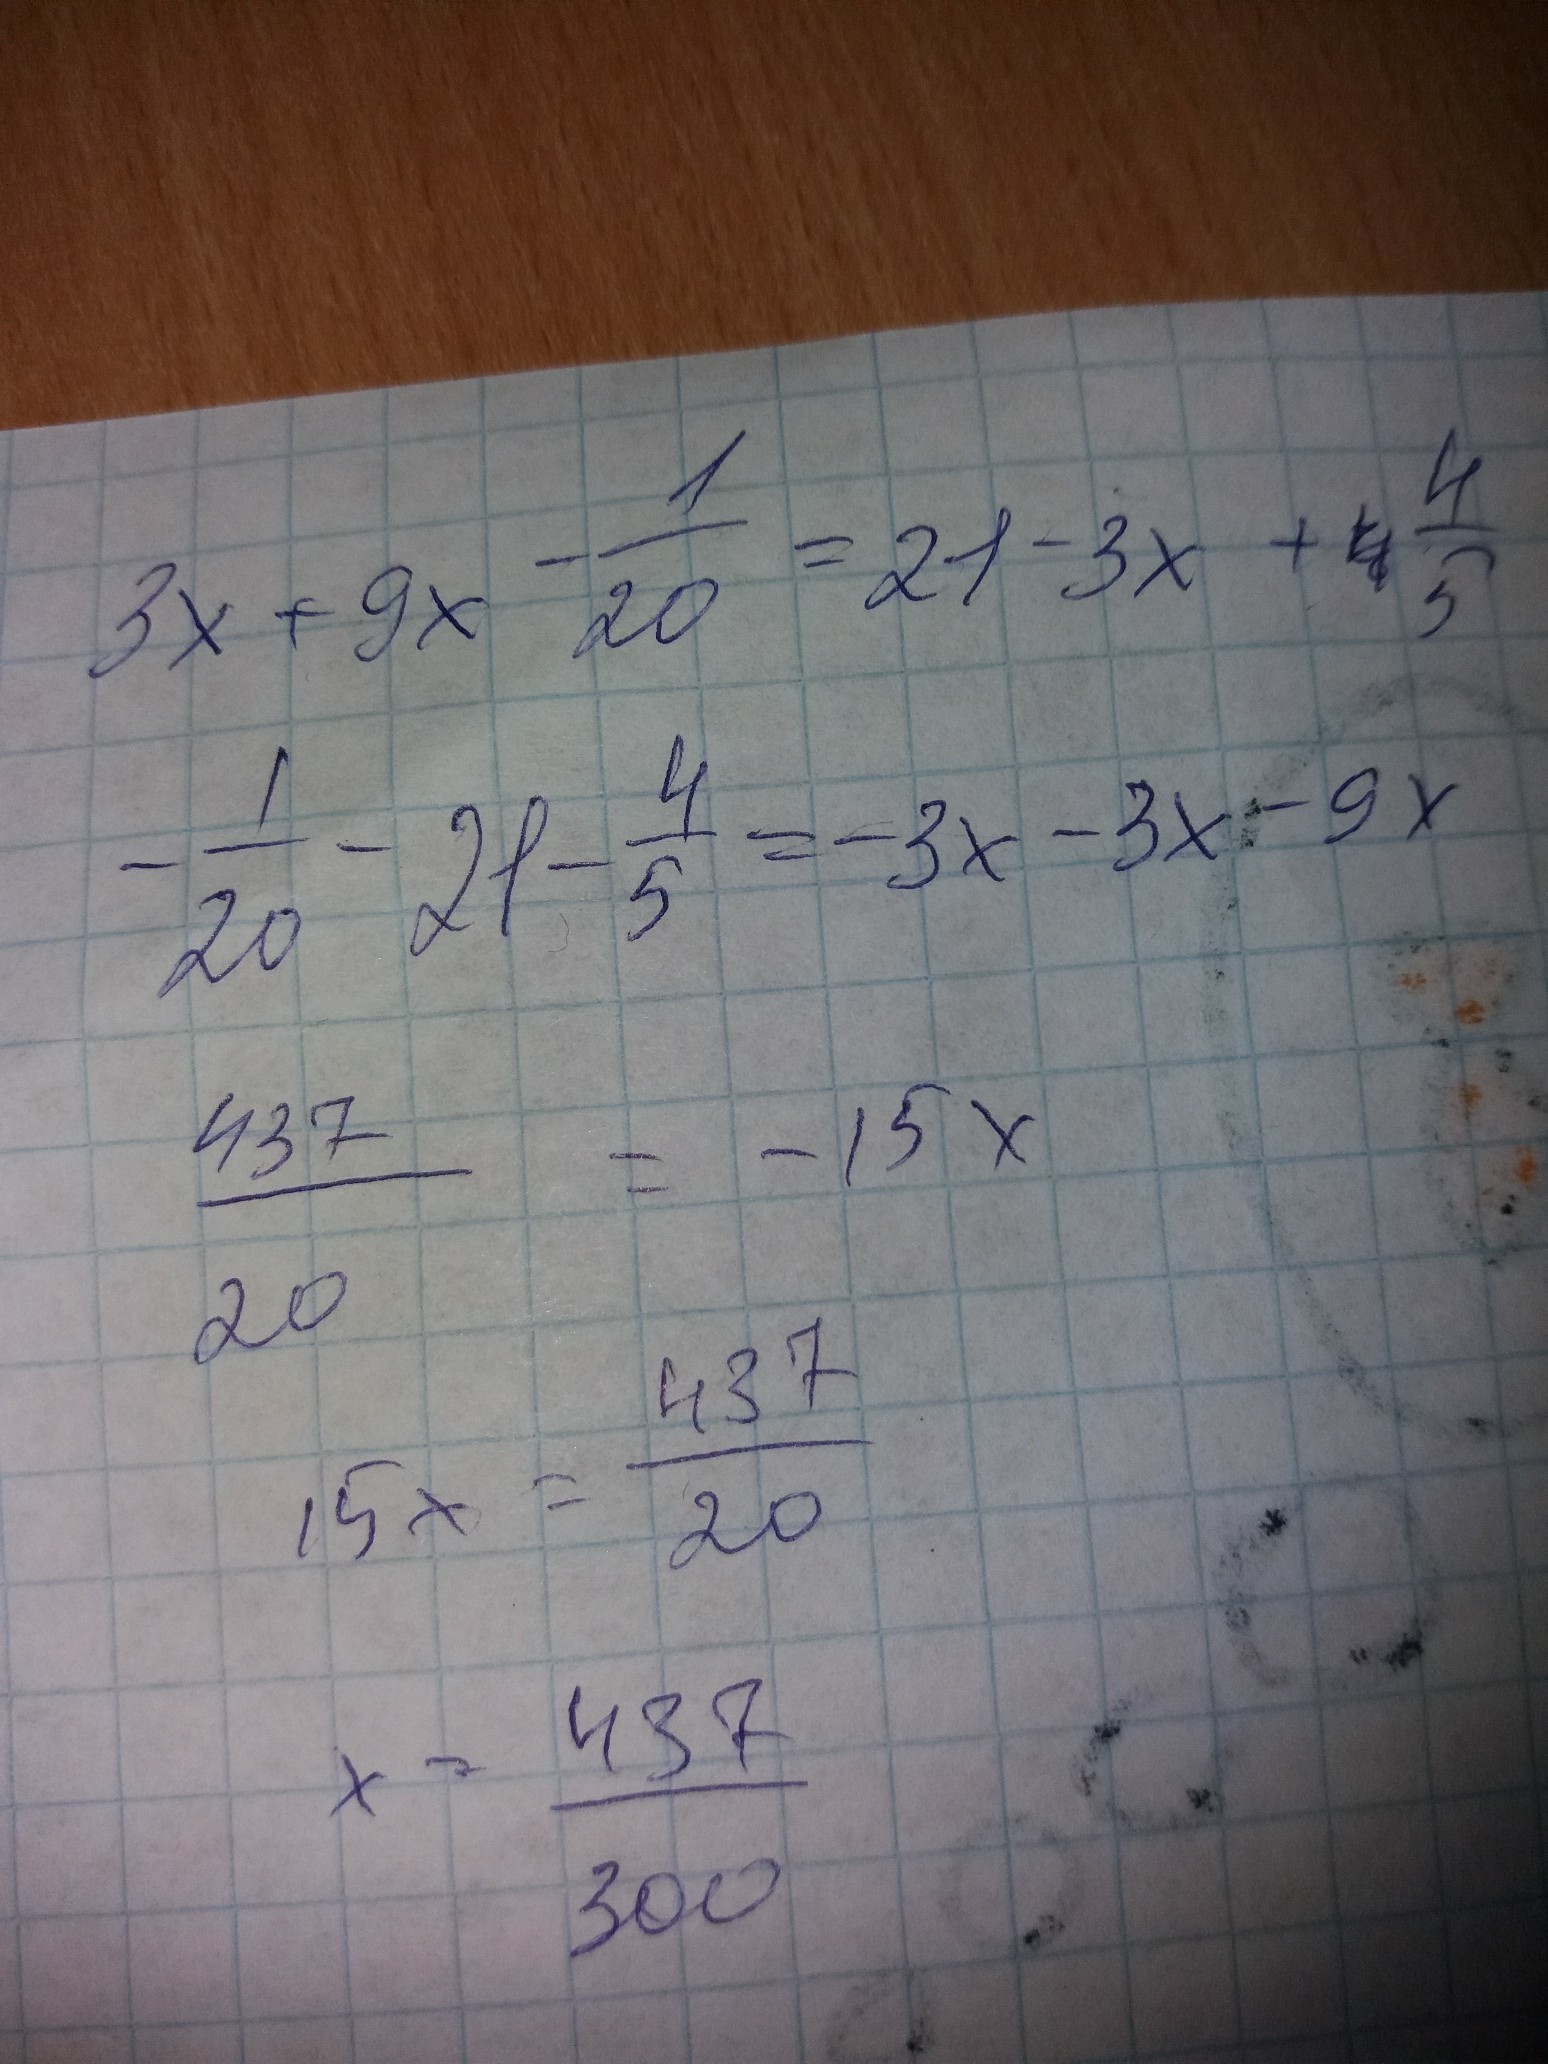 3x + 9x - 1/20 = 21 - 3x + 4/5
- 1/20 - 21 - 4/5 = -3x - 3x - 9x
437/20 = -15x
15x = 437/20
x = 437/300